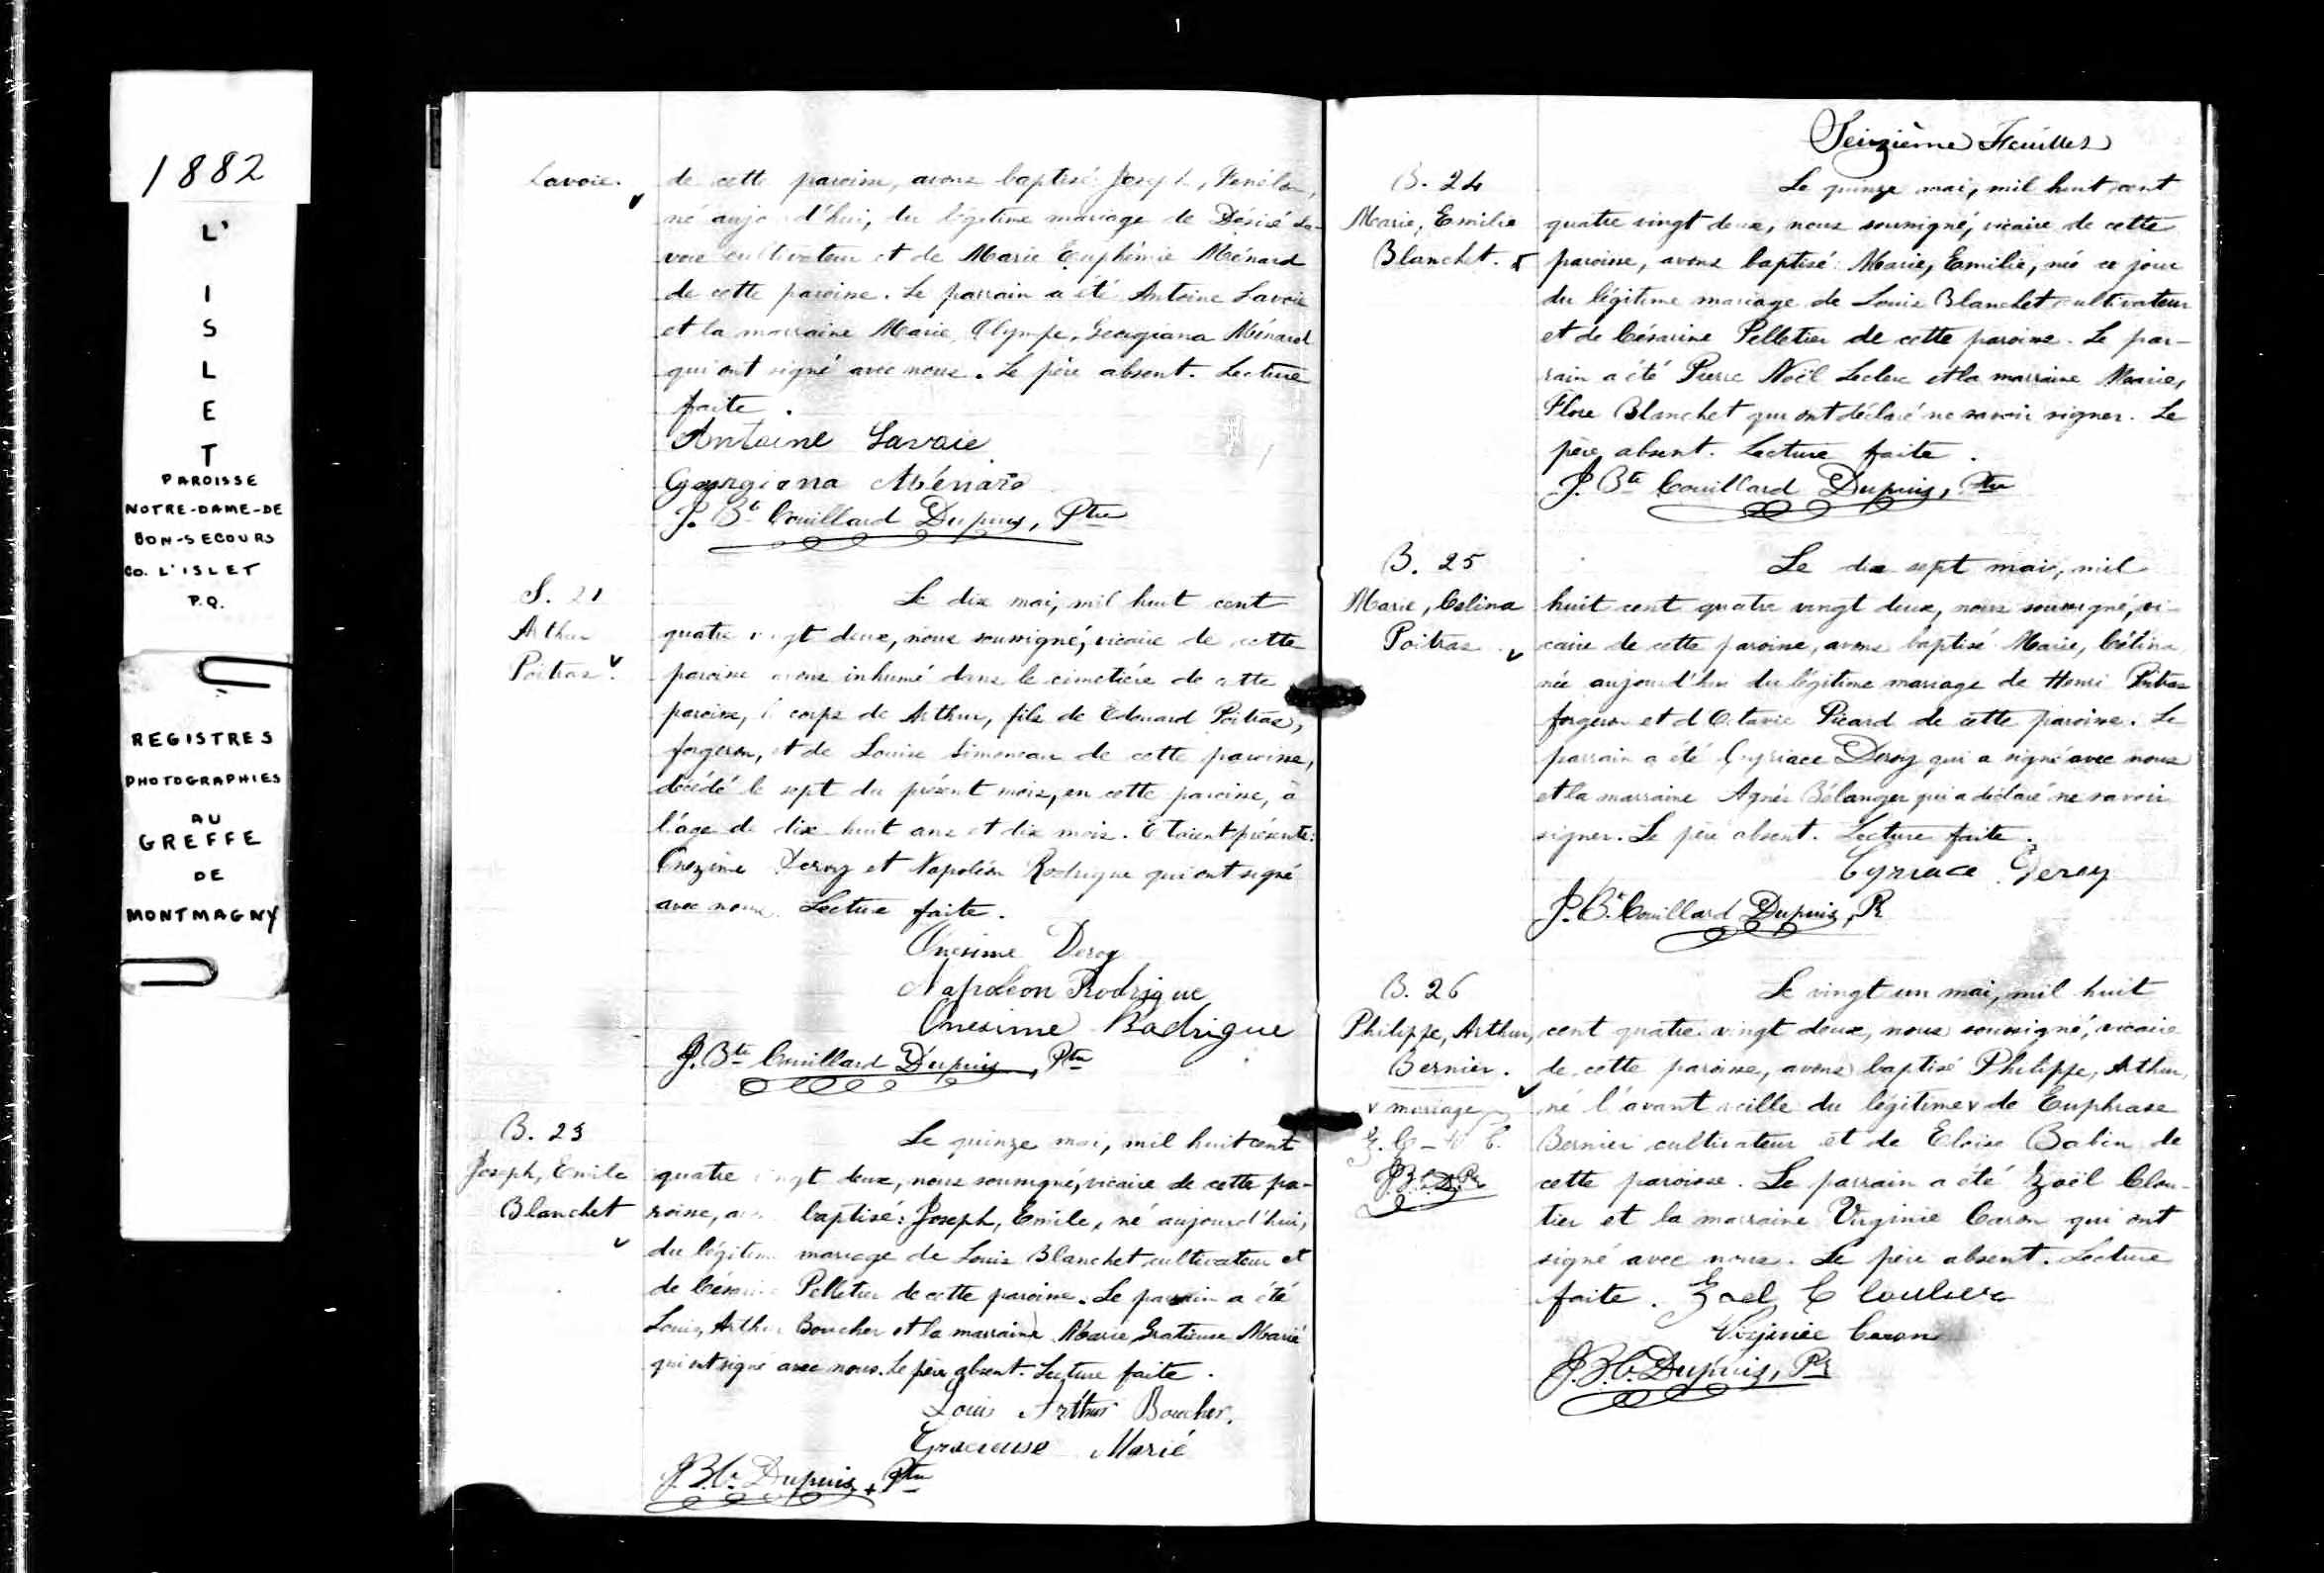 1882
L'
I
S
L
E
T
PAROISSE
NOTRE-DAME-DE
BON-SECOURS
CO. L'ISLET
P.Q.
REGISTRES
PHOTOGRAPHIES
AU
GREFFE
DE
MONTMAGNY
Lavoie.
de cette paroisse, avons baptisé Joseph, Fénélon,
né aujourd'hui, du légitime mariage de Désiré La-
voie cultivateur et de Marie Euphémie Ménard
de cette paroisse. Le parrain a été Antoine Lavoie
et la marraine Marie, Olympe, Georgiana Ménard
qui ont signé avec nous. Le père absent. Lecture
faite.
Antoine Lavoie
Georgiana Ménard
J. Bte Couillard Dupuis, Ptre
S. 21
Arthur
Poitras.
Le dix mai, mil huit cent
quatre vingt deux, nous soussigné, vicaire de cette
paroisse avons inhumé dans le cimetière de cette
paroisse, le corps de Arthur, fils de Edouard Poitras,
forgeron, et de Louise Simoneau de cette paroisse,
décédé le sept du présent mois, en cette paroisse, à
l'âge de dix huit ans et dix mois. Etaient présents:
Onezime Deroy et Napoléon Rodrigue qui ont signé
avec nous. Lecture faite.
Onesime Deroy
Napoléon Rodrigue
Onesime Rodrigue
J. Bte Couillard Dupuis, Ptre
B. 23
Joseph, Emile
Blanchet
Le quinze mai, mil huit cent
quatre vingt deux, nous soussigné, vicaire de cette pa-
roisse, avons baptisé: Joseph, Emile, né aujourd'hui,
du légitime mariage de Louis Blanchet cultivateur et
de Césarine Pelletier de cette paroisse. Le parrain a été
Louis, Arthur Boucher et la marraine Marie Gratieuse Marié
qui ont signé avec nous. Le père absent. Lecture faite.
Louis Arthur Boucher.
Gracieuse Marié
J.B.C. Dupuis, Ptre
Seizième Feuillet
B. 24
Marie, Emilie
Blanchet.
Le quinze mai, mil huit cent
quatre vingt deux, nous soussigné, vicaire de cette
paroisse, avons baptisé Marie, Emilie, née ce jour
du légitime mariage de Louis Blanchet cultivateur
et de Césarine Pelletier de cette paroisse. Le par-
rain a été Pierre Noël Leclerc et la marraine Marie,
Flore Blanchet qui ont déclaré ne savoir signer. Le
père absent. Lecture faite.
J. Bte Couillard Dupuis, Ptre
B. 25
Marie, Celina
Poitras
Le dix sept mai, mil
huit cent quatre vingt deux, nous soussigné, vi-
caire de cette paroisse, avons baptisé Marie, Célina,
née aujourd'hui du légitime mariage de Henri Poitras
forgeron et d'Octavie Picard de cette paroisse. Le
parrain a été Cyriace Deroy qui a signé avec nous
et la marraine Agnès Bélanger qui a déclaré ne savoir
signer. Le père absent. Lecture faite.
Cyriace Deroy
J. Bte Couillard Dupuis, Pr
B. 26
Philippe, Arthur,
Bernier.
v mariage
Z. C - V C.
J.B.C.D. Pr
Le vingt un mai, mil huit
cent quatre vingt deux, nous soussigné, vicaire
de cette paroisse, avons baptisé Philippe, Arthur,
né l'avant veille du légitime v de Euphrase
Bernier cultivateur et de Eloise Babin de
cette paroisse. Le parrain a été Zoël Clou-
tier et la marraine Virginie Caron qui ont
signé avec nous. Le père absent. Lecture
faite. Zoel Cloutier
Virjinie Caron
J.B.C. Dupuis, Pr